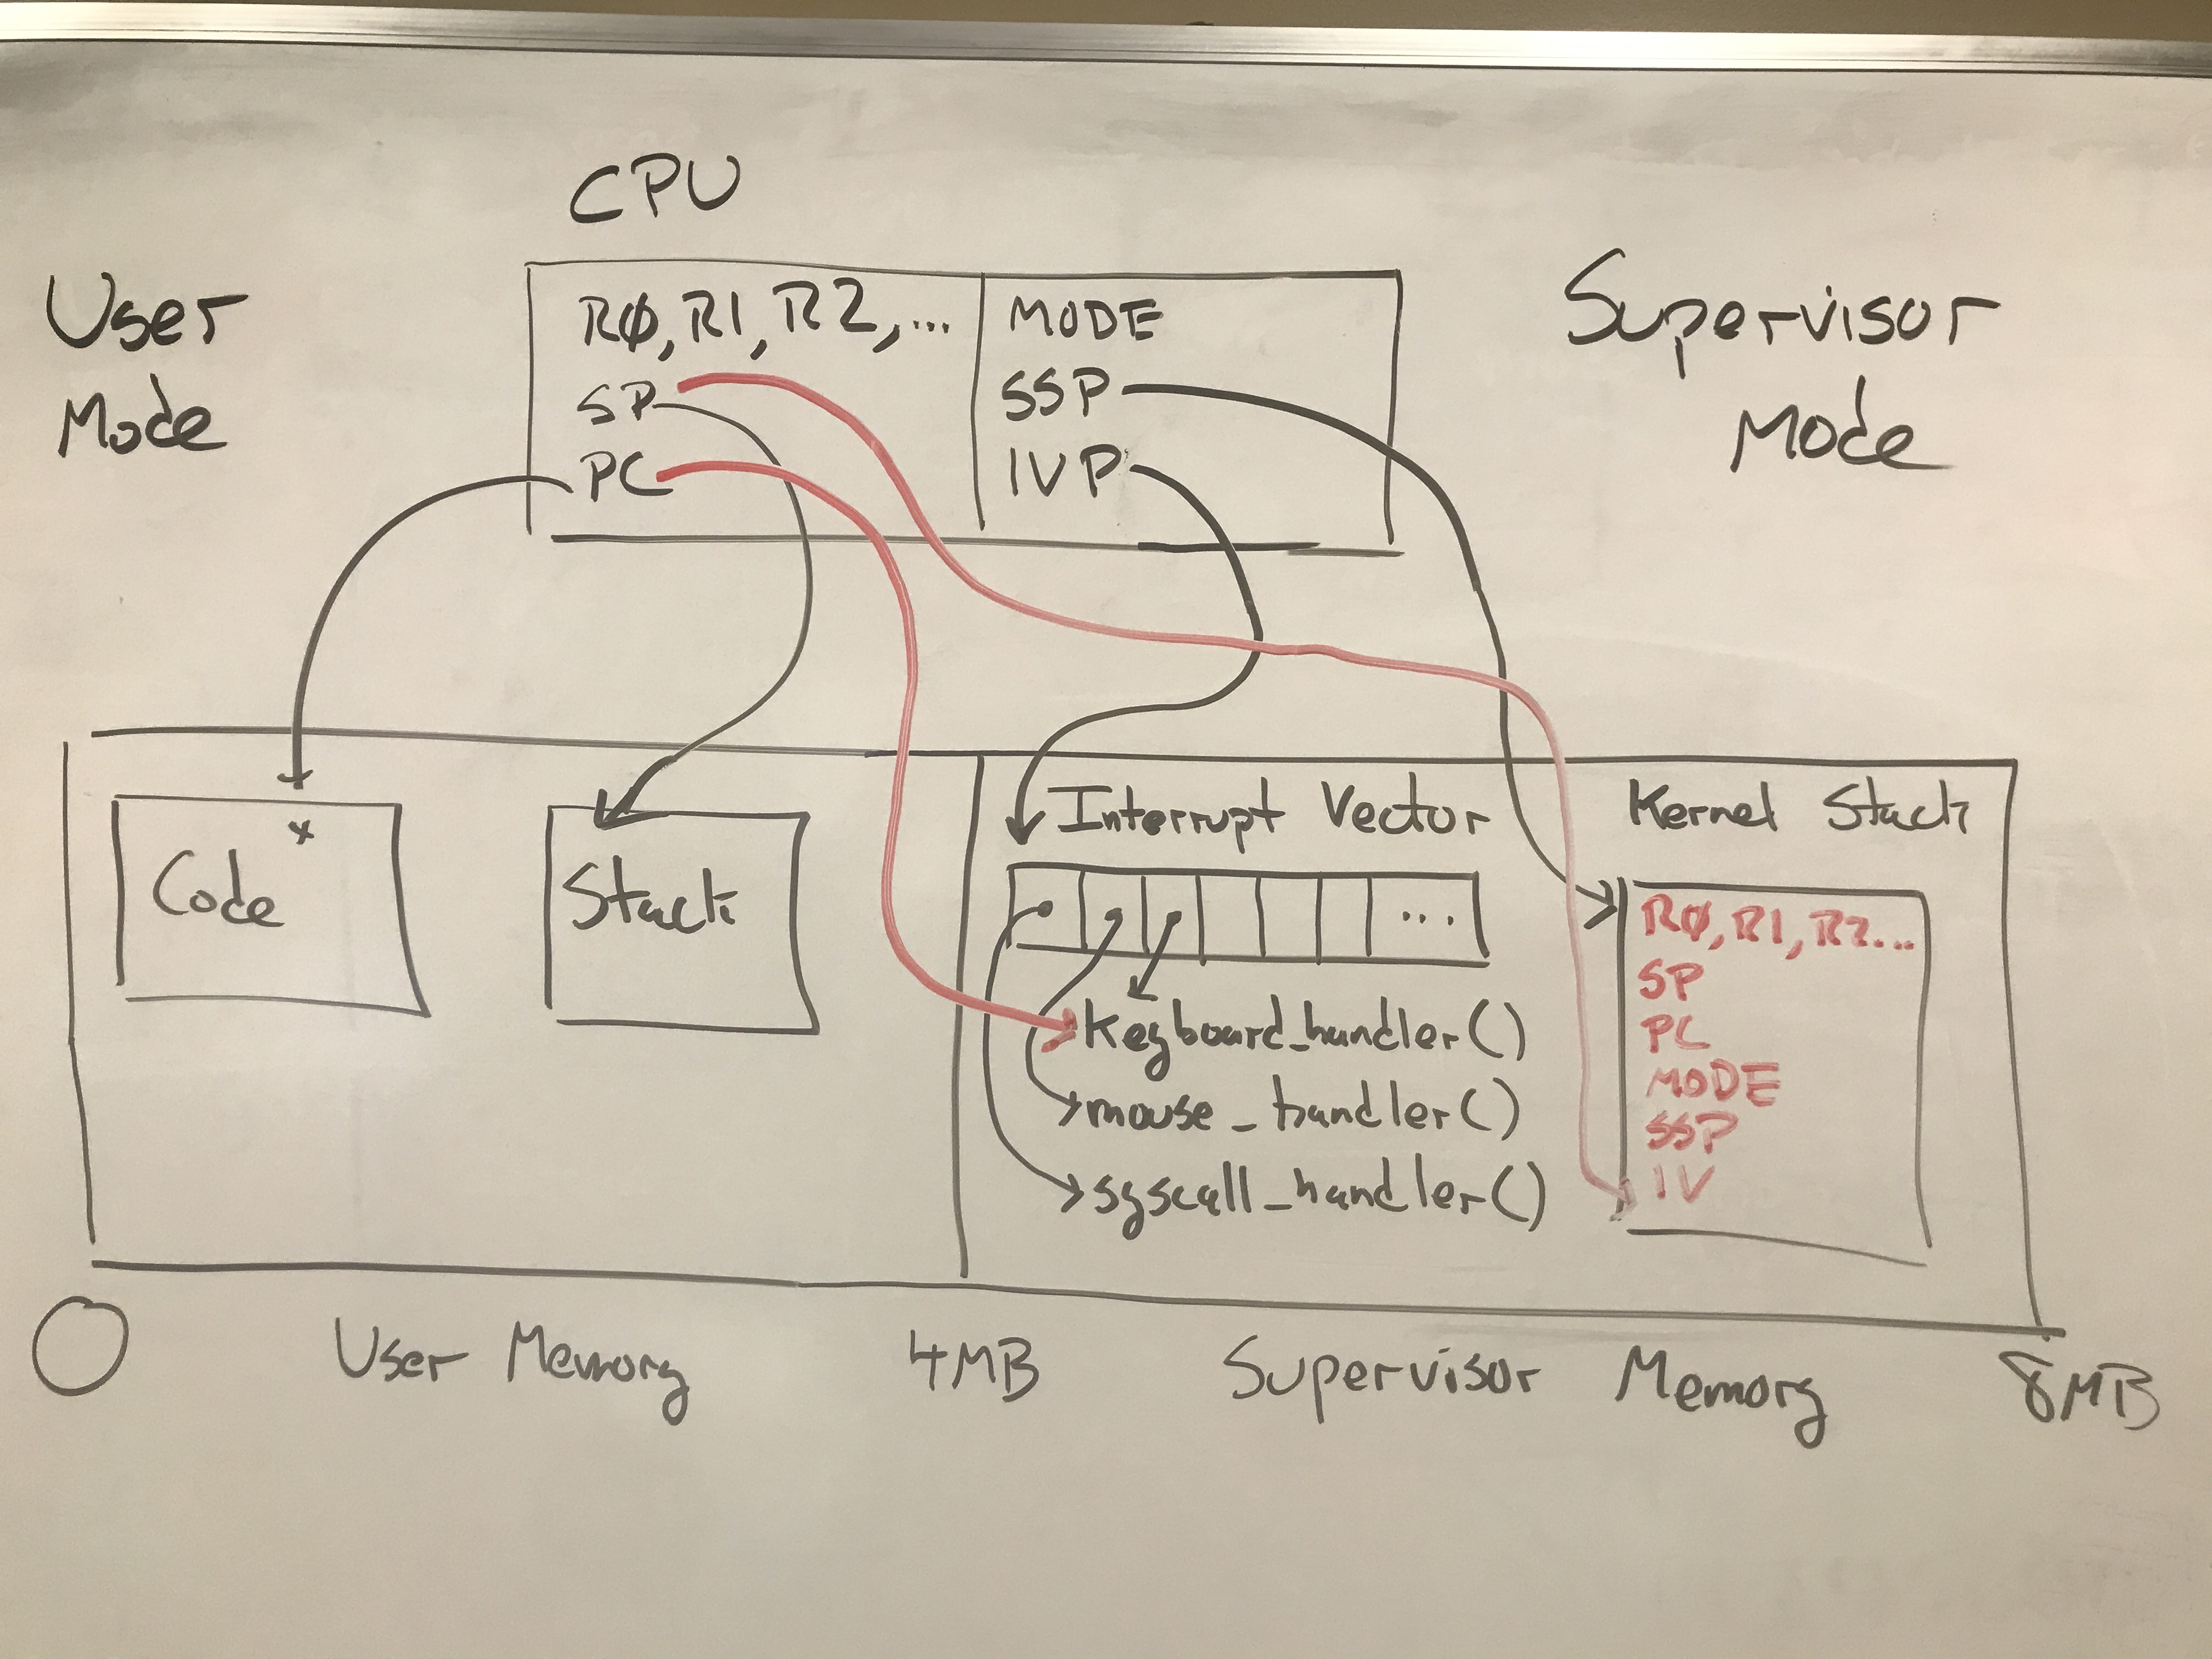 CPU
User
Mode
R0, R1, R2, ...
SP
PC
MODE
SSP
IVP
Supervisor
Mode
Code
x
Stack
Interrupt Vector
...
keyboard_handler()
mouse_handler()
syscall_handler()
Kernel Stack
R0, R1, R2...
SP
PC
MODE
SSP
IV
0
User Memory
4MB
Supervisor Memory
8MB